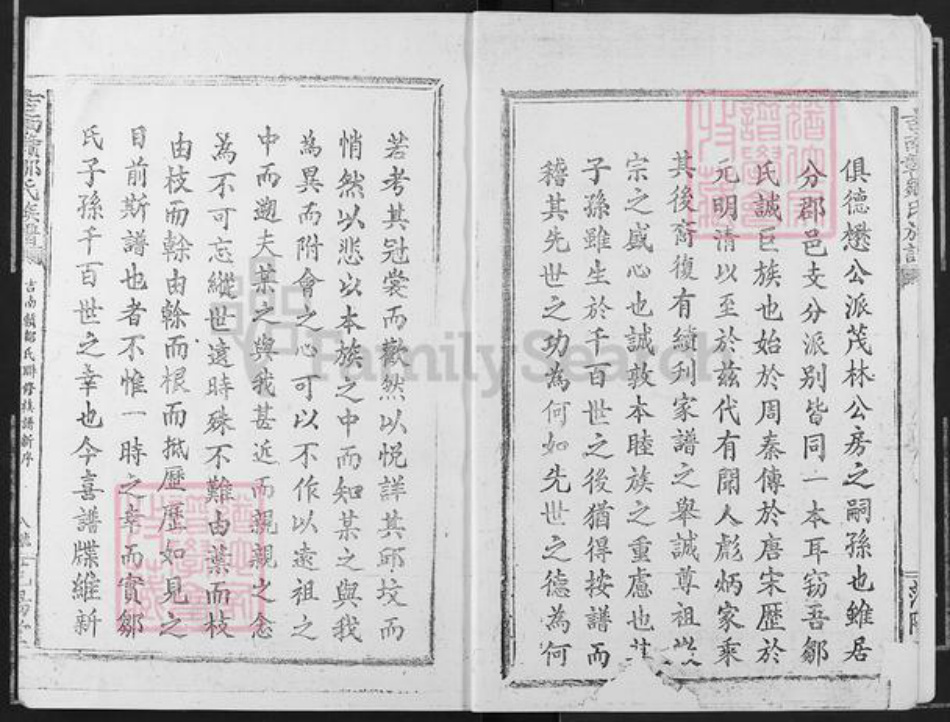 俱德懋公派茂林公房之嗣孫也雖居
分郡邑支分派別皆同一本耳窃吾鄒
氏誠巨族也始於周秦傳於唐宋歷於
元明清以至於兹代有聞人彪炳家乘
其後裔復有續刊家譜之舉誠尊祖
宗之盛心也誠敦本睦族之重慮也
子孫雖生於千百世之後猶得按譜而
稽其先世之功為何如先世之德為何
若考其冠裳而歡然以悅詳其邱坟而
悄然以悲以本族之中而知某之與我
為異而附會之心可以不作以遠祖之
中而遡夫某之與我甚近而親親之念
為不可忘縱世遠時殊不難由葉而枝
由枝而榦由榦而根而抵歷歷如見之
目前斯譜也者不惟一時之幸而實鄒
氏子孫千百世之幸也今喜譜牒維新
吉南贛鄒氏族譜
吉南贛鄒氏聯修族譜新序
FamilySearch